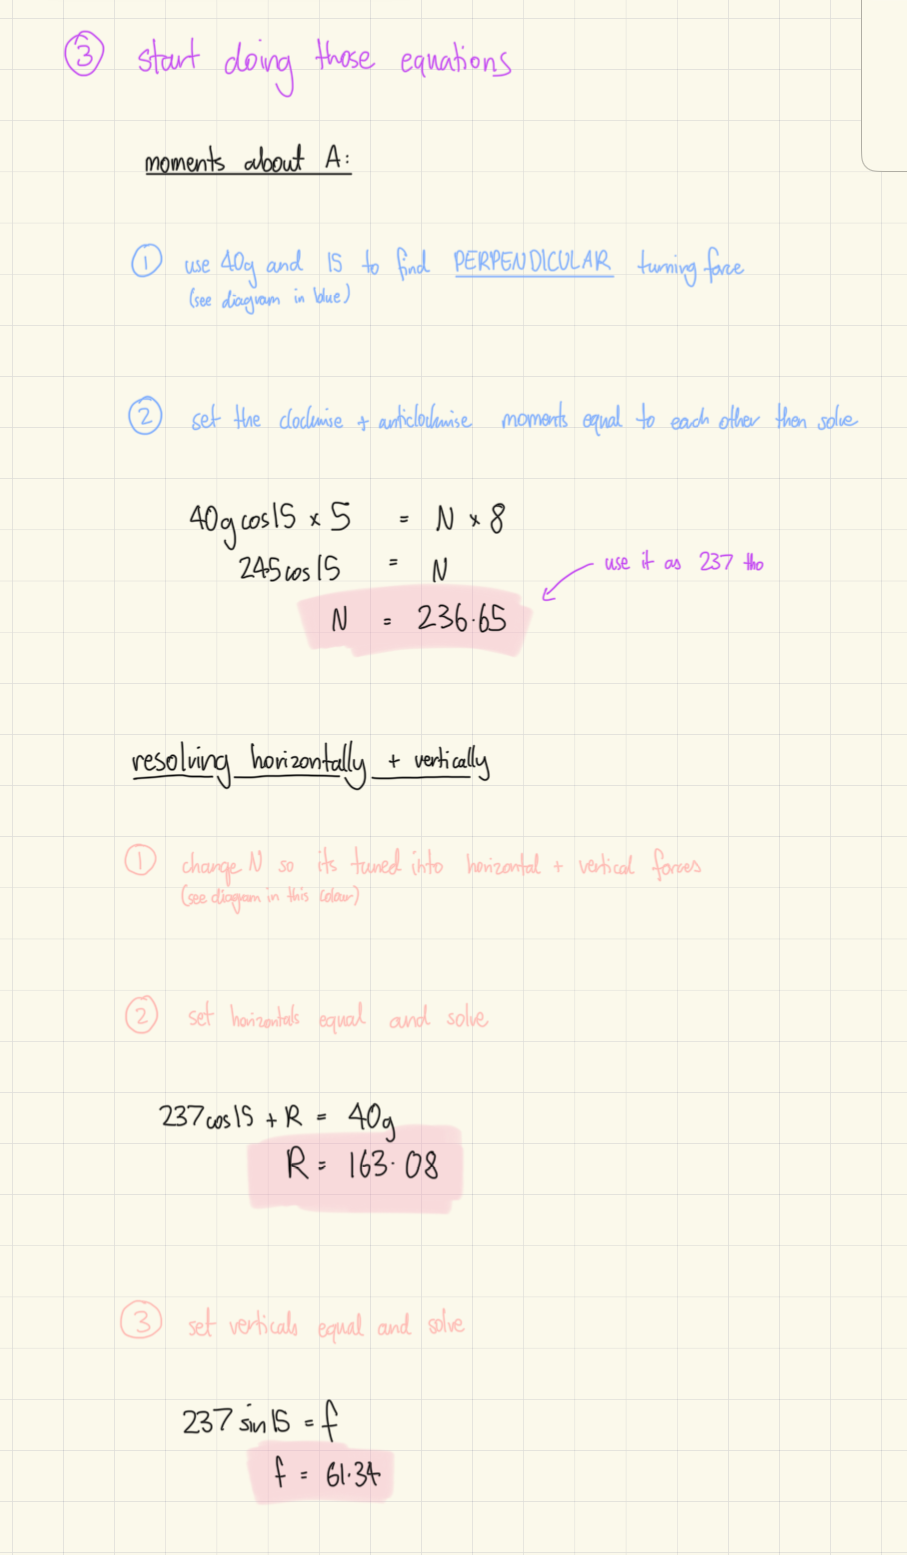 ③ start doing those equations
moments about A:
① use 40g and 15 to find PERPENDICULAR turning force
(see diagram in blue)
② set the clockwise + anticlockwise moments equal to each other then solve
40g cos15 × 5 = N × 8
245 cos15 = N
use it as 237 tho
N = 236.65
resolving horizontally + vertically
① change N so its tuned into horizontal + vertical forces
(see diagram in this colour)
② set horizontals equal and solve
237 cos15 + R = 40g
R = 163.08
③ set verticals equal and solve
237 sin15 = f
f = 61.34